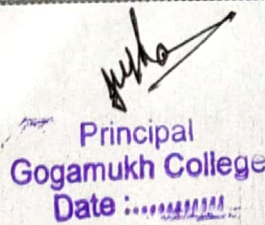 Principal
Gogamukh College
Date :..........